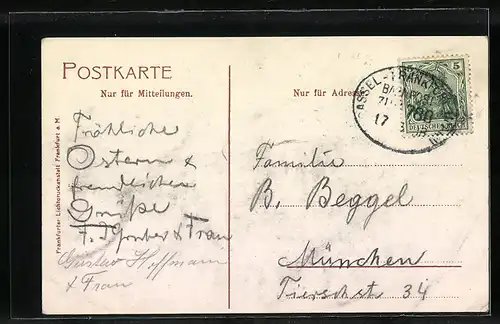 POSTKARTE
Nur für Mitteilungen.
Nur für Adresse
CASSEL - FRANKFURT
BAHNPOST
5
DEUTSCHES REICH
17
Fröhliche
Ostern &
freundlichen
Grüße
& Frau
Gustav Hoffmann
& Frau
Familie
B. Beggel
München
Tierschst 34
Frankfurter Lichtdruckanstalt Frankfurt a. M.